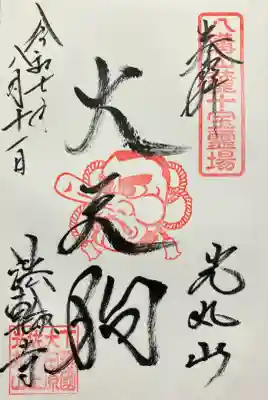 八溝山麓十宝霊場
奉拝
光丸山
大天狗
令和七年
八月十一日
法輪寺